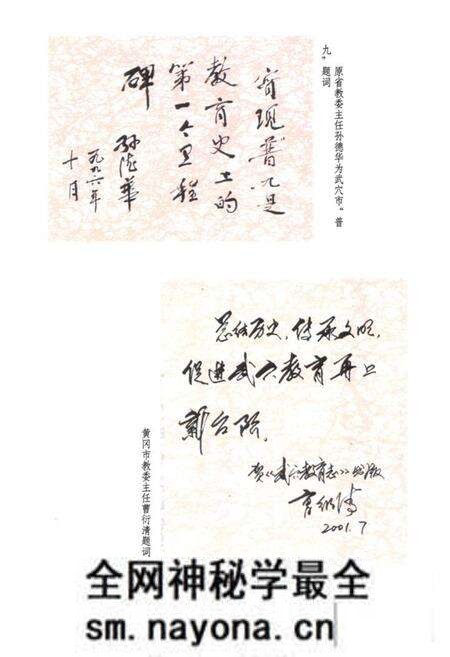 原省教委主任孙德华为武穴市“普
九”题词
实现“普九”是
教育史上的
第一个里程
碑
孙德华
一九九六年
十月
总结历史，传承文明，
促进武穴教育再上
新台阶。
贺《武穴教育志》出版
曹衍清
2001.7
黄冈市教委主任曹衍清题词
全网神秘学最全
sm.nayona.cn